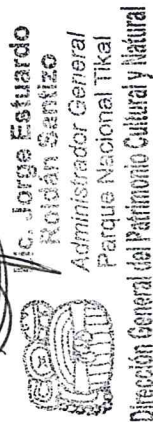 Lic. Jorge Estuardo
Roldán Santizo
Administrador General
Parque Nacional Tikal
Dirección General del Patrimonio Cultural y Natural